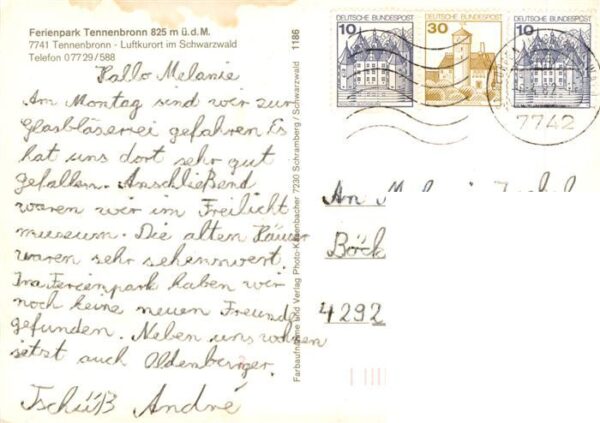 Ferienpark Tennenbronn 825 m ü.d.M.
7741 Tennenbronn - Luftkurort im Schwarzwald
Telefon 07729/588
Hallo Melanie
Am Montag sind wir zur
Glasbläserei gefahren Es
hat uns dort sehr gut
gefallen. Anschließend
waren wir im Freilicht
museum. Die alten Häuser
waren sehr sehenswert.
Im Ferienpark haben wir
noch keine neuen Freunde
gefunden. Neben uns wohnen
jetzt auch Oldenberger.
Tschüß André
1186
Farbaufnahme und Verlag Photo-Kaltenbacher 7230 Schramberg/Schwarzwald
DEUTSCHE BUNDESPOST
10
DEUTSCHE BUNDESPOST
30
DEUTSCHE BUNDESPOST
10
7742
An
Böck
4292